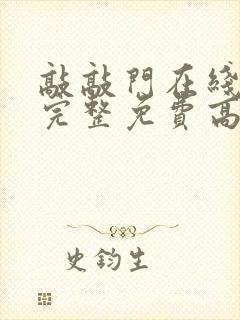 敲敲門在綫
完整免費高
史鈞生